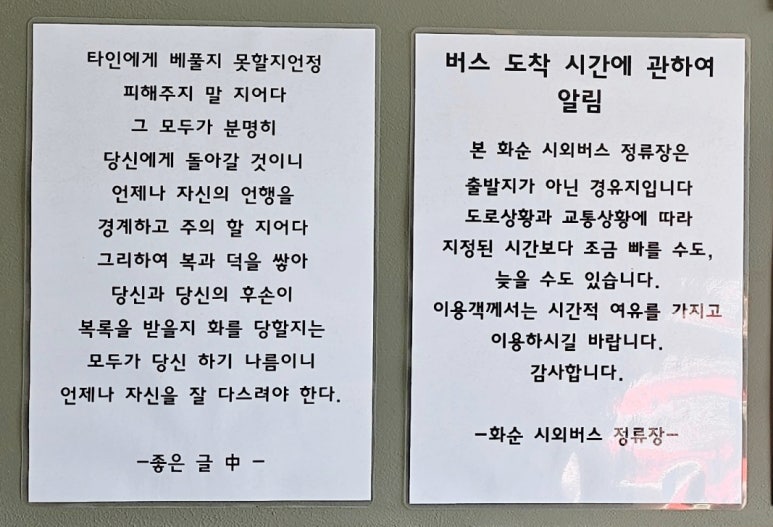 타인에게 베풀지 못할지언정
피해주지 말 지어다
그 모두가 분명히
당신에게 돌아갈 것이니
언제나 자신의 언행을
경계하고 주의 할 지어다
그리하여 복과 덕을 쌓아
당신과 당신의 후손이
복록을 받을지 화를 당할지는
모두가 당신 하기 나름이니
언제나 자신을 잘 다스려야 한다.
-좋은 글 中 -
버스 도착 시간에 관하여
알림
본 화순 시외버스 정류장은
출발지가 아닌 경유지입니다
도로상황과 교통상황에 따라
지정된 시간보다 조금 빠를 수도,
늦을 수도 있습니다.
이용객께서는 시간적 여유를 가지고
이용하시길 바랍니다.
감사합니다.
-화순 시외버스 정류장-